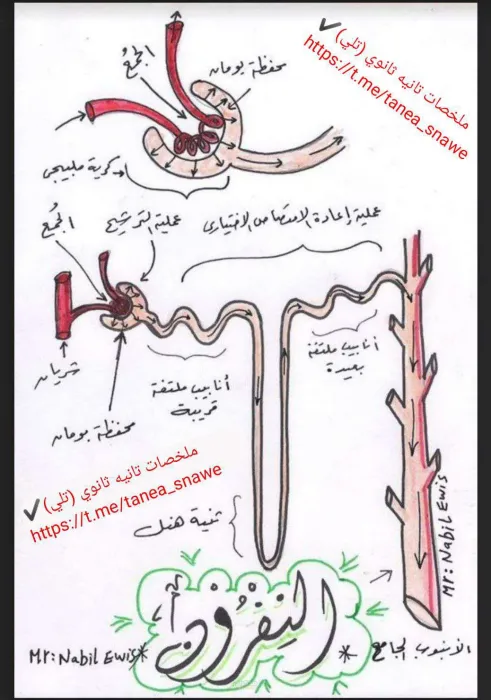 ملخصات تانيه ثانوي (تلي) ✔
https://t.me/tanea_snawe
الجُمع
محفظة بومان
كرية ملبيجى
عملية إعادة الامتصاص الاختيارى
عملية الترشيح
الجُمع
شريان
محفظة بومان
أنابيب ملتفة
قريبة
أنابيب ملتفة
بعيدة
ملخصات تانيه ثانوي (تلي) ✔
https://t.me/tanea_snawe
ثنية هنل
Mr: Nabil Ewis
النيفرُون
Mr: Nabil Ewis*
* الأنبوب الجامع